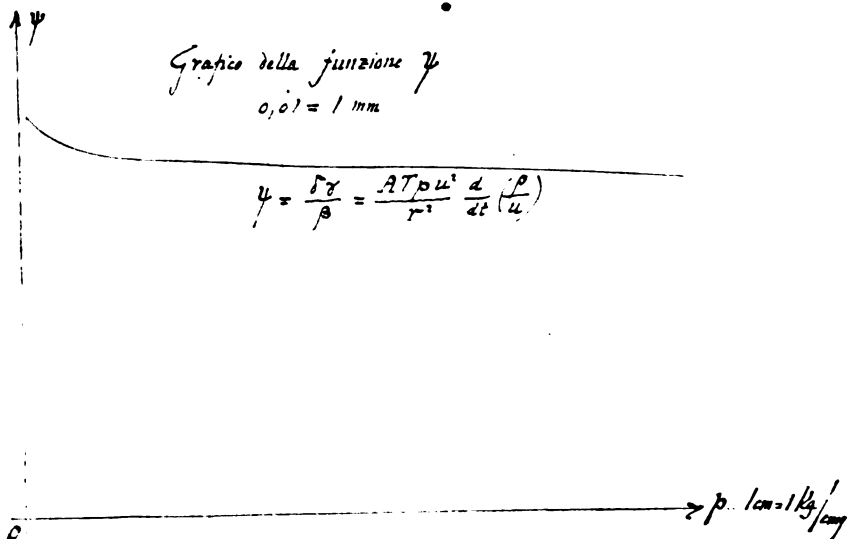 ψ
Grafico della funzione ψ
0,01 = 1 mm
ψ = δγ/β = ATpu²/r² d/dt (ρ/u)
p. 1cm=1 Kg/cmq
O